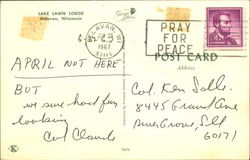 LAKE LAWN LODGE
Delavan, Wisconsin
DELAVAN, WI
1967
PRAY
FOR
PEACE
POST CARD
Address
APRIL NOT HERE
BUT
we sure hard for
looking
Col. Ken
8445 Grand Ave
River Grove, Ill
60171